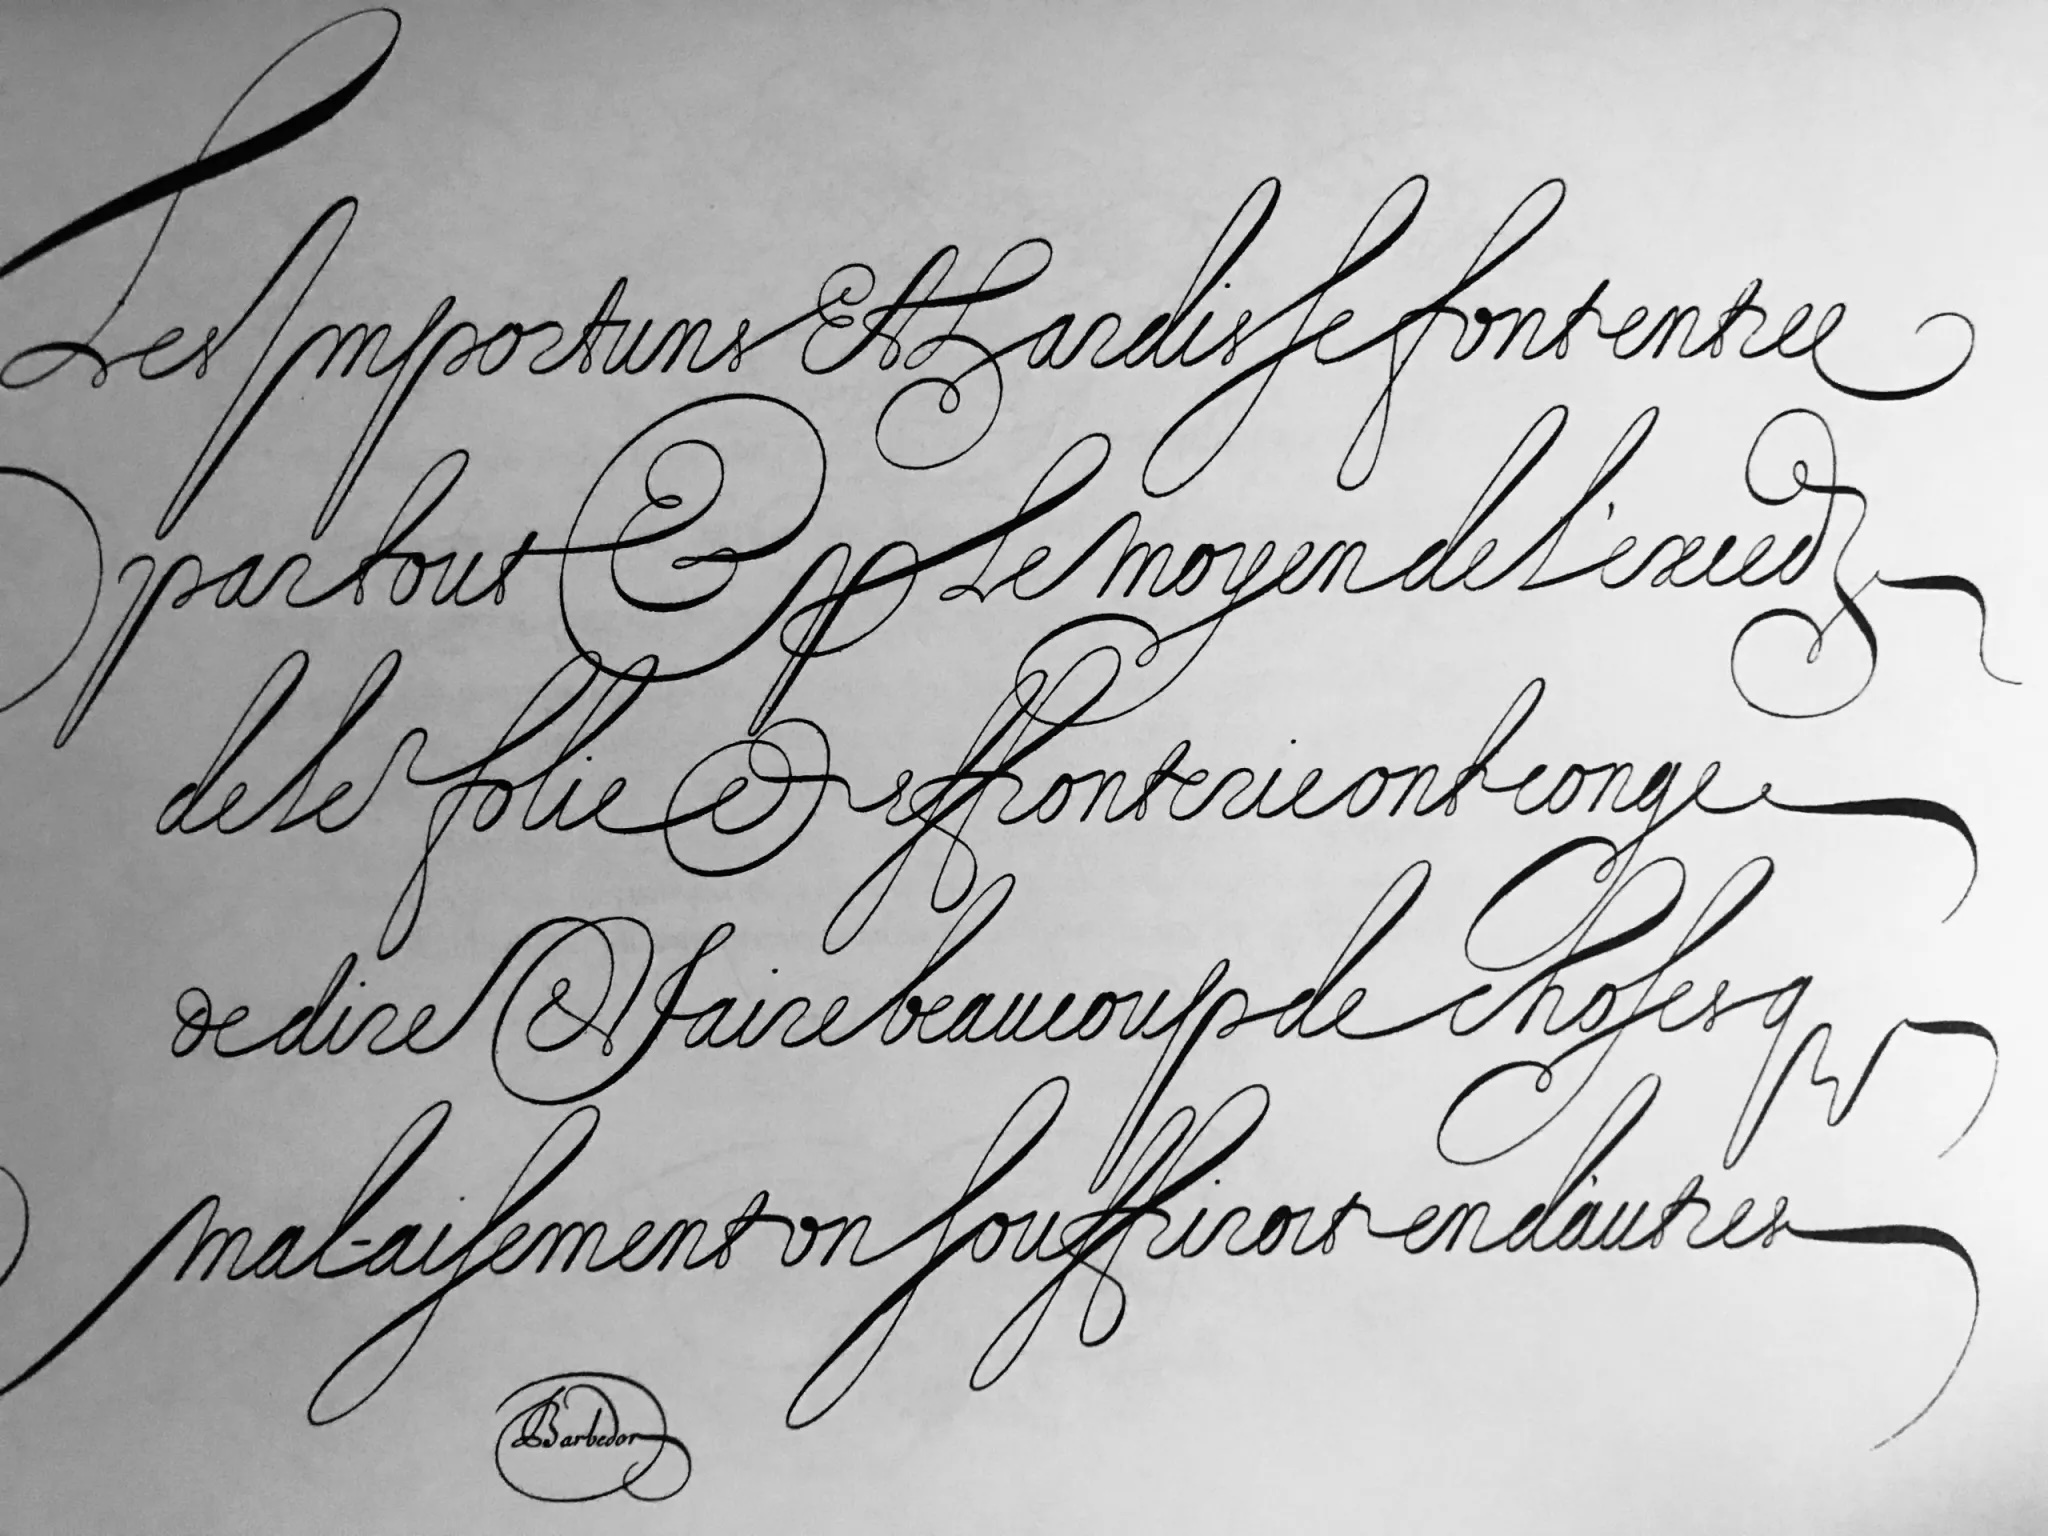 Les Importuns Et Hardis ſe font entree
partout & p Le moyen de l'excedz
de Ler folie & effronterie ont conge
De dire & faire beaucoup de choſes q
mal-aiſement on ſouffriroit en d'autres
LBarbedor